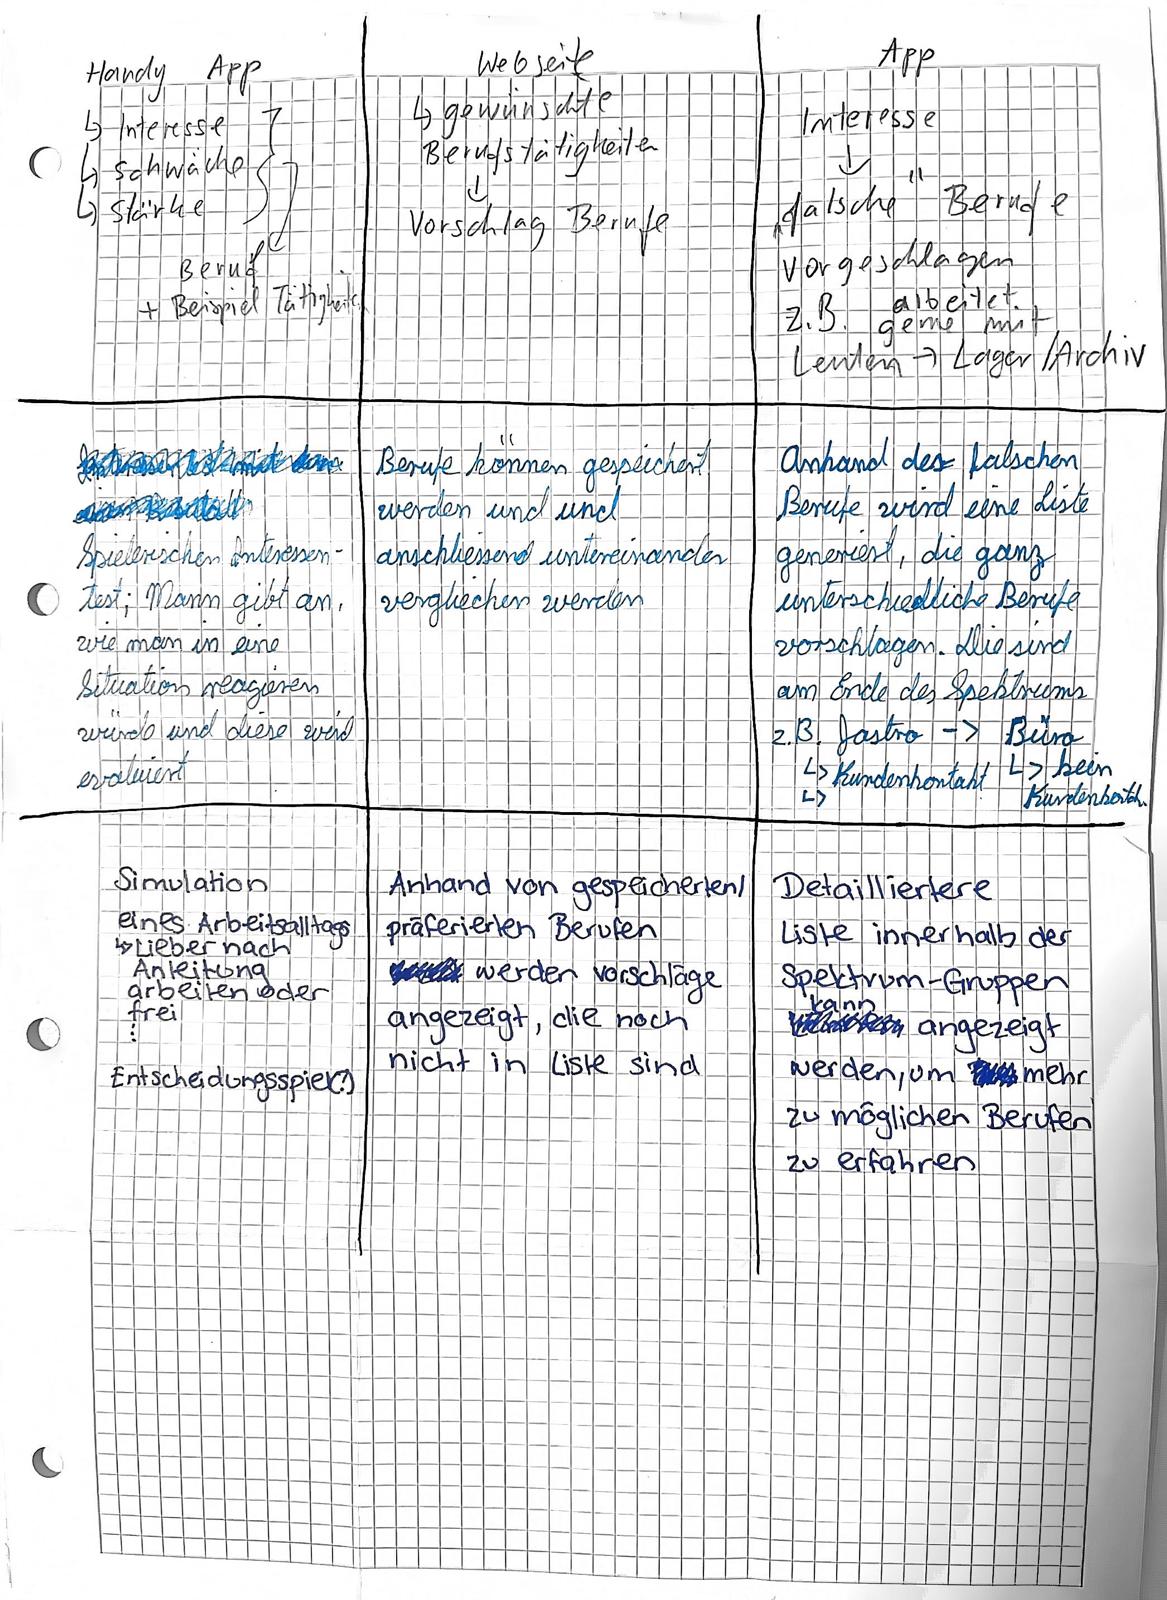 Handy App
↳ Interesse
↳ schwäche
↳ stärke
Beruf
+ Beispiel Tätigkeit
Webseite
↳ gewünschte
Berufstätigkeiten
↓
Vorschlag Berufe
App
Interesse
↓
„falsche" Berufe
vorgeschlagen
z.B. arbeitet
gerne mit
Leuten → Lager/Archiv
Spielerischen Interessen-
test; Mann gibt an,
wie man in eine
Situation reagieren
würde und diese wird
evaluiert
Berufe können gespeichert
werden und und
anschliessend untereinander
vergliechen werden
Anhand der falschen
Berufe wird eine Liste
generiert, die ganz
unterschiedliche Berufe
vorschlagen. Die sind
am Ende des Spektrums
z.B. Gastro -> Büro
↳ Kundenkontakt ↳ kein
↳ Kundenkontak.
Simulation
eines Arbeitsalltags
↳ Lieber nach
Anleitung
arbeiten oder
frei
⋮
Entscheidungsspiel(?)
Anhand von gespeicherten/
präferierten Berufen
werden vorschläge
angezeigt, die noch
nicht in Liste sind
Detailliertere
Liste innerhalb der
Spektrum-Gruppen
kann
angezeigt
werden, um mehr
zu möglichen Berufen
zu erfahren